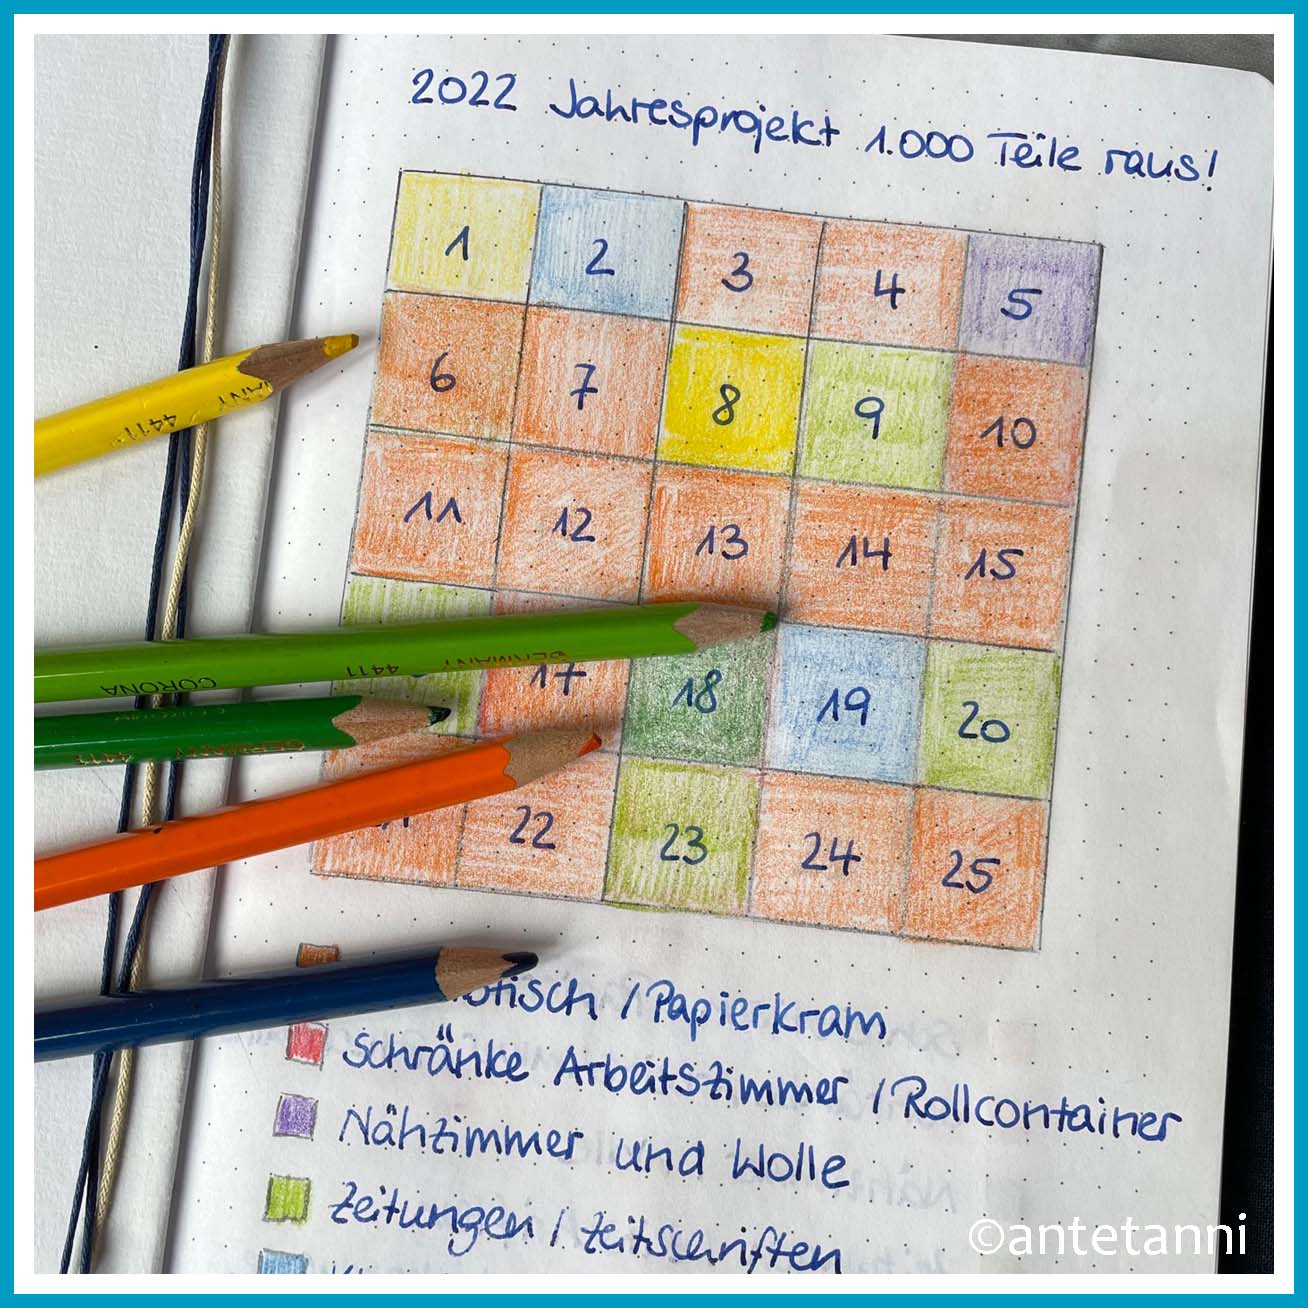 2022 Jahresprojekt 1.000 Teile raus!
1 2 3 4 5
6 7 8 9 10
11 12 13 14 15
17 18 19 20
22 23 24 25
/ Papierkram
Schränke Arbeitszimmer / Rollcontainer
Nähzimmer und Wolle
Zeitungen / Zeitschriften
GERMANY 4411
CORONA
GERMANY 4411
4411
©antetanni